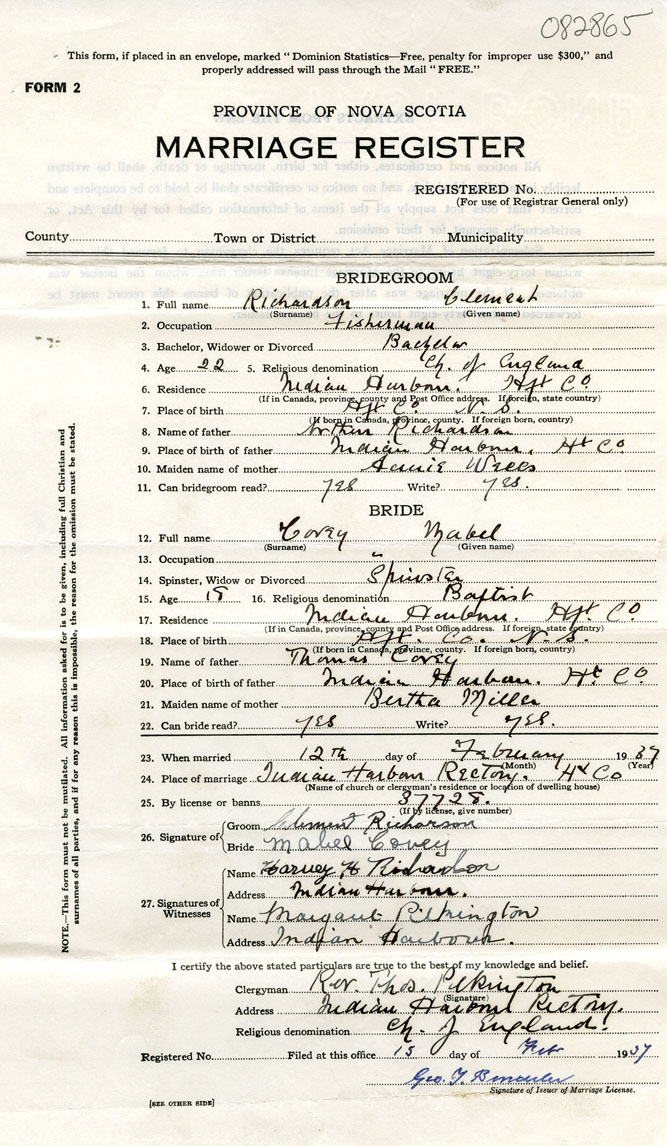 082865
This form, if placed in an envelope, marked " Dominion Statistics—Free, penalty for improper use $300," and
properly addressed will pass through the Mail " FREE."
FORM 2
PROVINCE OF NOVA SCOTIA
MARRIAGE REGISTER
REGISTERED No.
(For use of Registrar General only)
County Town or District Municipality
BRIDEGROOM
1. Full name Richardson Clement
(Surname) (Given name)
2. Occupation Fisherman
3. Bachelor, Widower or Divorced Bachelor
4. Age 22 5. Religious denomination Ch. of England
6. Residence Indian Harbour. Hfx Co
(If in Canada, province, county and Post Office address. If foreign, state country)
7. Place of birth Hfx Co. N. S.
(If born in Canada, province, county. If foreign born, country)
8. Name of father Richardson
9. Place of birth of father Indian Harbour. Hx Co
10. Maiden name of mother Annie
11. Can bridegroom read? yes Write? yes.
BRIDE
12. Full name Covey Mabel
(Surname) (Given name)
13. Occupation "
14. Spinster, Widow or Divorced Spinster
15. Age 18 16. Religious denomination Baptist
17. Residence Indian Harbour. Hfx Co
(If in Canada, province, county and Post Office address. If foreign, state country)
18. Place of birth Hfx. Co. N. S.
(If born in Canada, province, county. If foreign born, country)
19. Name of father Thomas Covey
20. Place of birth of father Indian Harbour. Hx Co
21. Maiden name of mother Bertha Miller
22. Can bride read? yes Write? yes.
23. When married 12th day of February 1937
(Month) (Year)
24. Place of marriage Indian Harbour Rectory. Hx Co
(Name of church or clergyman's residence or location of dwelling house)
25. By license or banns 37728.
(If by license, give number)
26. Signature of Groom Clement Richarson
Bride Mabel Covey
27. Signatures of Witnesses Name Harvey H Richardson
Address Indian Harbour.
Name Margaret Pilkington
Address Indian Harbour.
I certify the above stated particulars are true to the best of my knowledge and belief.
Clergyman Rev. Thos. Pilkington
(Signature)
Address Indian Harbour Rectory.
Religious denomination Ch. of England.
Registered No. Filed at this office 15 day of Feb 1937
Geo. T.
Signature of Issuer of Marriage License.
[SEE OTHER SIDE]
NOTE.—This form must not be mutilated. All information asked for is to be given, including full Christian and
surnames of all parties, and if for any reason this is impossible, the reason for the omission must be stated.